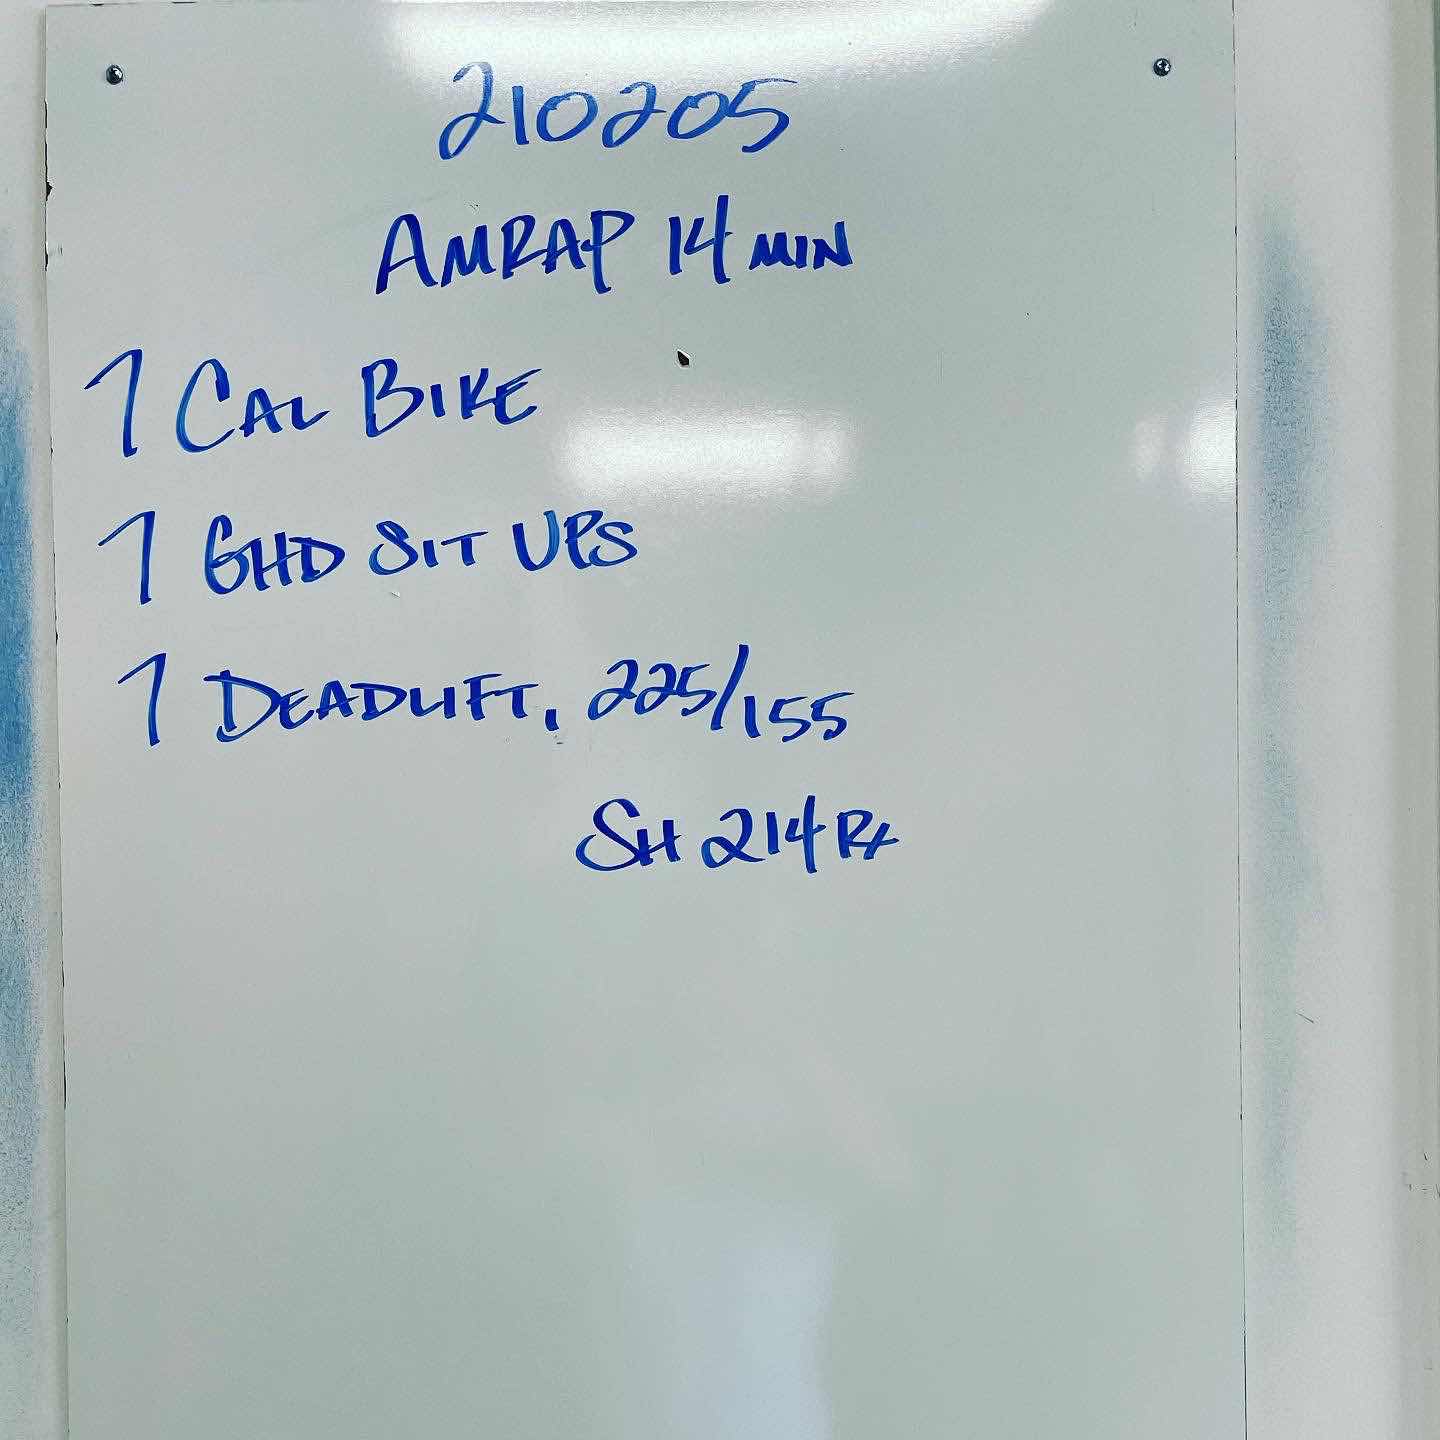 210205
AMRAP 14 MIN
7 CAL BIKE
7 GHD SIT UPS
7 DEADLIFT, 225/155
SH 214 Rx